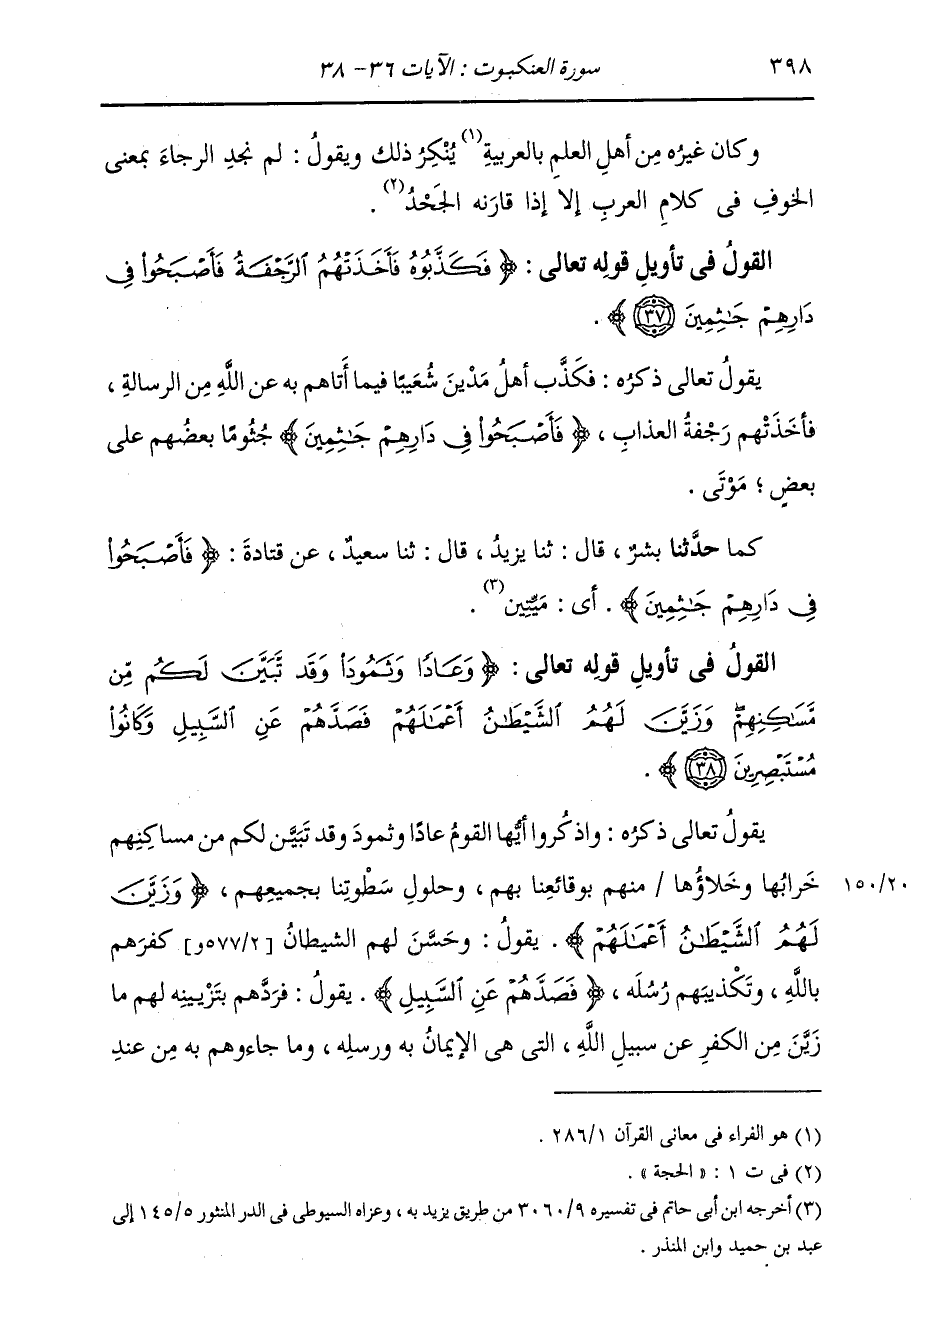 ٣٩٨ سورة العنكبوت : الآيات ٣٦- ٣٨
وكان غيرُه مِن أهلِ العلمِ بالعربيةِ(١) يُنْكِرُ ذلك ويقولُ : لم نجدِ الرجاءَ بمعنى
الخوفِ فى كلامِ العربِ إلا إذا قارَنه الجَحْدُ(٢) .
القولُ فى تأويلِ قولِه تعالى : ﴿ فَكَذَّبُوهُ فَأَخَذَتْهُمُ ٱلرَّجْفَةُ فَأَصْبَحُوا۟ فِى
دَارِهِمْ جَٰثِمِينَ ٣٧ ﴾ .
يقولُ تعالى ذكرُه : فكَذَّب أهلُ مَدْينَ شُعَيبًا فيما أَتاهم به عن اللَّهِ مِن الرسالةِ ،
فأخَذَتْهم رَجْفةُ العذابِ ، ﴿ فَأَصْبَحُوا۟ فِى دَارِهِمْ جَٰثِمِينَ ﴾ جُثُومًا بعضُهم على
بعضٍ ؛ مَوْتَى .
كما حدَّثنا بشرٌ ، قال : ثنا يزيدُ ، قال : ثنا سعيدٌ ، عن قتادةَ : ﴿ فَأَصْبَحُوا۟
فِى دَارِهِمْ جَٰثِمِينَ ﴾ . أى : مَيِّتِين(٣) .
القولُ فى تأويلِ قولِه تعالى : ﴿ وَعَادًا وَثَمُودَا۟ وَقَد تَّبَيَّنَ لَكُم مِّن
مَّسَٰكِنِهِمْ ۖ وَزَيَّنَ لَهُمُ ٱلشَّيْطَٰنُ أَعْمَٰلَهُمْ فَصَدَّهُمْ عَنِ ٱلسَّبِيلِ وَكَانُوا۟
مُسْتَبْصِرِينَ ٣٨ ﴾ .
يقولُ تعالى ذكرُه : واذكُروا أيُّها القومُ عادًا وثمودَ وقد تبَيَّن لكم من مساكِنِهم
١٥٠/٢٠ خَرابُها وخَلاؤُها / منهم بوقائعِنا بهم ، وحلولِ سَطْوتِنا بجميعِهم ، ﴿ وَزَيَّنَ
لَهُمُ ٱلشَّيْطَٰنُ أَعْمَٰلَهُمْ ﴾ . يقولُ : وحَسَّنَ لهم الشيطانُ [٥٧٧/٢و] كفرَهم
باللَّهِ ، وتَكْذيبَهم رُسُلَه ، ﴿ فَصَدَّهُمْ عَنِ ٱلسَّبِيلِ ﴾ . يقولُ : فرَدَّهم بتَزْيينِه لهم ما
زَيَّنَ مِن الكفرِ عن سبيلِ اللَّهِ ، التى هى الإيمانُ به ورسلِه ، وما جاءوهم به مِن عندِ
(١) هو الفراء فى معانى القرآن ٢٨٦/١ .
(٢) فى ت ١ : « الحجة » .
(٣) أخرجه ابن أبى حاتم فى تفسيره ٣٠٦٠/٩ من طريق يزيد به ، وعزاه السيوطى فى الدر المنثور ١٤٥/٥ إلى
عبد بن حميد وابن المنذر .